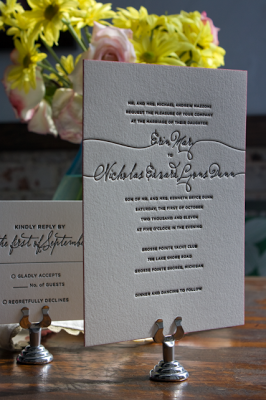 MR. AND MRS. MICHAEL ANDREW
REQUEST THE PLEASURE OF YOUR COMPANY
AT THE MARRIAGE OF THEIR DAUGHTER
Erin Mary
TO
Nicholas Gerard Lyons Dunn
SON OF MR. AND MRS. KENNETH BRYCE DUNN
SATURDAY, THE FIRST OF OCTOBER
TWO THOUSAND AND ELEVEN
AT FIVE O'CLOCK IN THE EVENING
GROSSE POINTE YACHT CLUB
THE LAKE SHORE ROAD
GROSSE POINTE SHORES, MICHIGAN
DINNER AND DANCING TO FOLLOW
KINDLY REPLY BY
the first of September
GLADLY ACCEPTS
No. of GUESTS
REGRETFULLY DECLINES